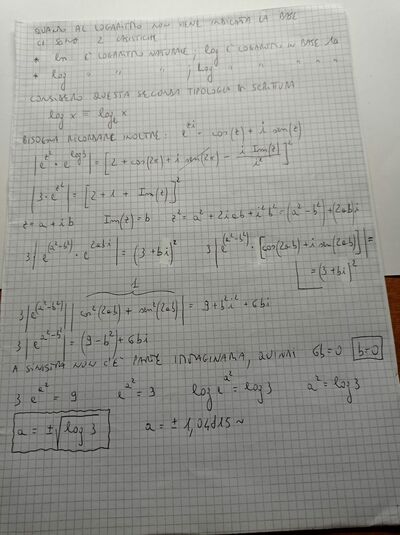 QUANDO AL LOGARITMO NON VIENE INDICATA LA BASE
CI SONO 2
* ln E' LOGARITMO NATURALE; log E' LOGARITMO IN BASE 10
* log " " " ; Log " " " " "
CONSIDERO QUESTA SECONDA TIPOLOGIA DI SCRITTURA
log x = log_e x
BISOGNA RICORDARE INOLTRE: e^{zi} = cos(z) + i sen(z)
|e^{z^2} · e^{log3}| = [2 + cos(2π) + i sen(2π) - i Im(z)/i^2]^2
|3 · e^{z^2}| = [2 + 1 + i Im(z)]^2
z = a + ib Im(z) = b z^2 = a^2 + 2iab + i^2 b^2 = (a^2 - b^2) + (2ab)i
3|e^{(a^2-b^2)} · e^{2abi}| = (3 + bi)^2 3|e^{(a^2-b^2)} · [cos(2ab) + i sen(2ab)]| =
= (3 + bi)^2
1
3|e^{(a^2-b^2)}| |cos^2(2ab) + sen^2(2ab)| = 9 + b^2 i^2 + 6bi
3|e^{a^2-b^2}| = (9 - b^2) + 6bi
A SINISTRA NON C'E' PARTE IMMAGINARIA, QUINDI 6b = 0 b = 0
3 e^{a^2} = 9 e^{a^2} = 3 log e^{a^2} = log 3 a^2 = log 3
a = ± √log 3 a = ± 1,04815 ~